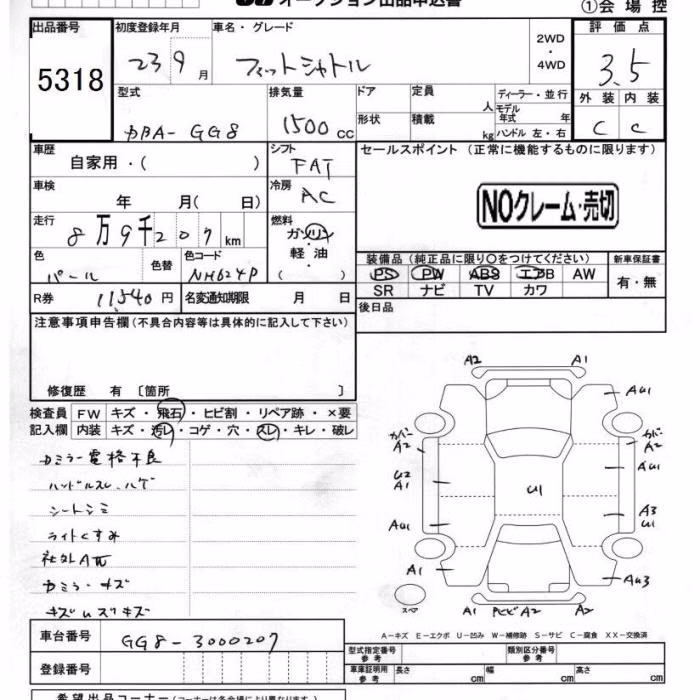 オークション出品申込書
①会場控
出品番号 5318
初度登録年月 23 9月
車名・グレード フィットシャトル
2WD・4WD
評価点 3.5
外装 C 内装 C
型式 DBA-GG8
排気量 1500cc
ドア 形状
定員 人
積載 kg
ディーラー・並行
モデル年式 年
ハンドル 左・右
車歴 自家用・( )
シフト FAT
セールスポイント (正常に機能するものに限ります)
車検 年 月( 日)
冷房 AC
NOクレーム・売切
走行 8万9千207km
燃料 ガソリン・軽油 ( )
色 パール 色替
色コード NH624P
装備品(純正品に限り○をつけてください) 新車保証書
PS PW ABS エアB AW 有・無
SR ナビ TV カワ
R券 11540円
名変通知期限 月 日
後日品
注意事項申告欄(不具合内容等は具体的に記入して下さい)
修復歴 有〔箇所 〕
検査員記入欄
FW キズ・飛石・ヒビ割・リペア跡・×要
内装 キズ・汚レ・コゲ・穴・スレ・キレ・破レ
カミラー電格不良
ハンドルスレ、ハゲ
シートシミ
ライトくすみ
社外AW
カミラーキズ
A2 A1
AU1
カバーA2 カバーA2
U2 A1 AU1
U1
AU1 A3 U1
A1 AU3
スペア A1 PCビA2 A2
A-キズ E-エクボ U-凹み W-補修跡 S-サビ C-腐食 XX-交換済
車台番号 GG8-3000207
登録番号
型式指定番号参考 類別区分番号参考
車庫証明用参考 長さ cm 幅 cm 高さ cm
希望出品コーナー(コーナーは各会場により異なります)